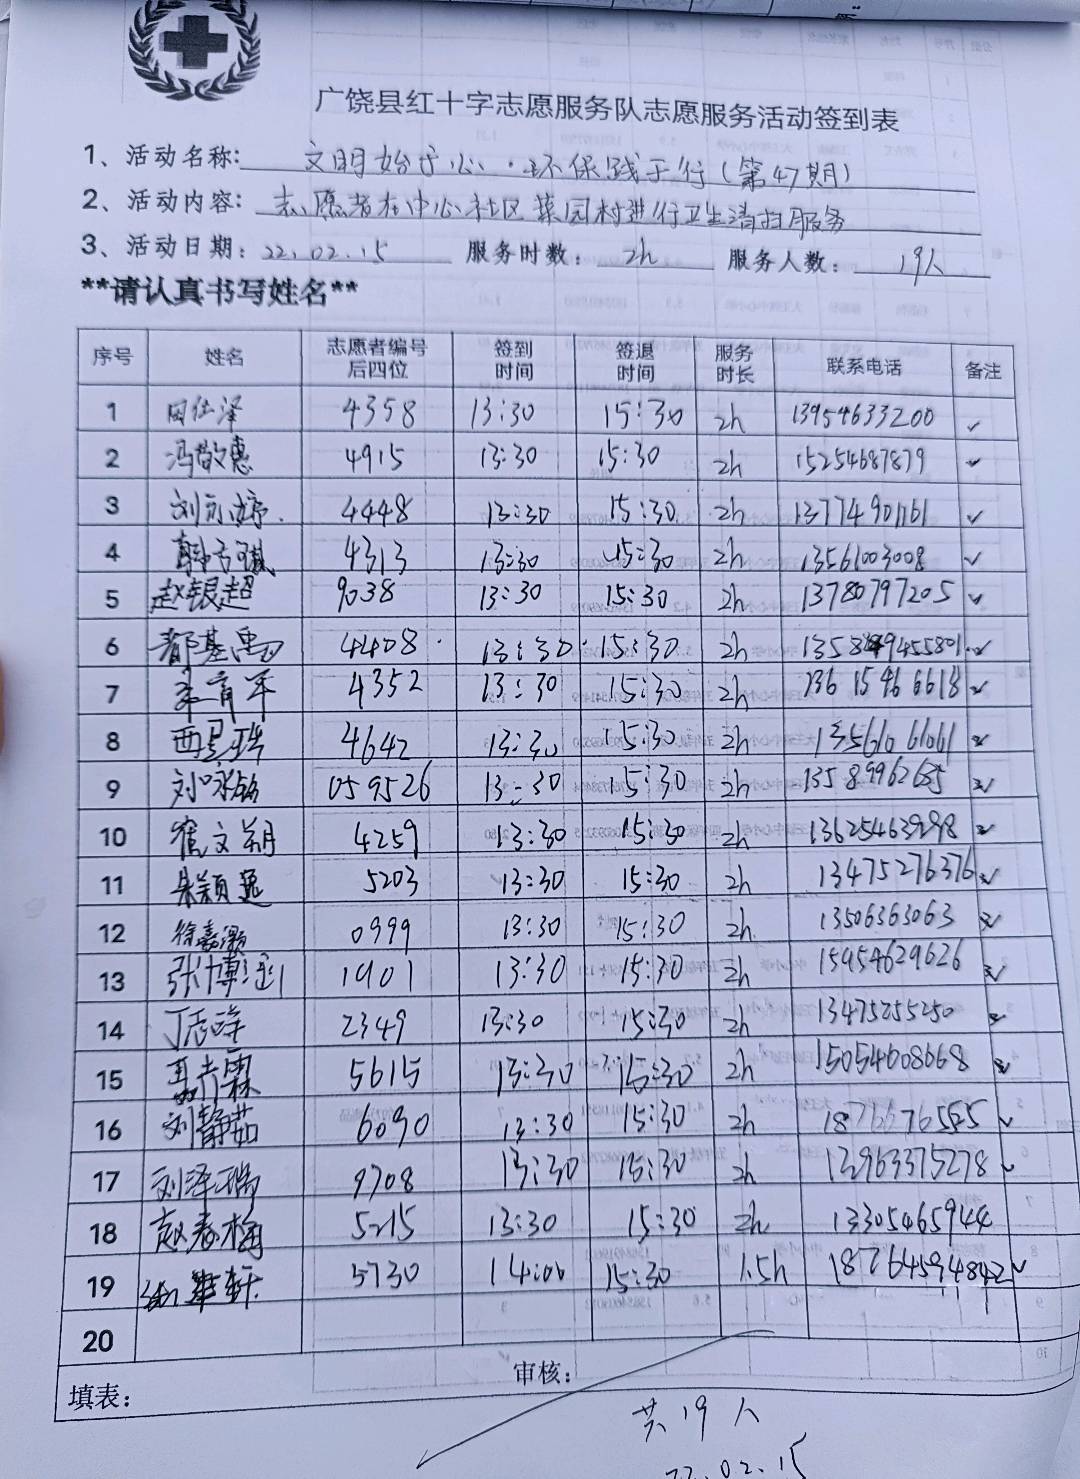 广饶县红十字志愿服务队志愿服务活动签到表
1、活动名称: 文明始于心·环保践于行(第47期)
2、活动内容: 志愿者在中心社区菜园村进行卫生清扫服务
3、活动日期: 22.02.15 服务时数: 2h 服务人数: 19人
**请认真书写姓名**
序号 姓名 志愿者编号后四位 签到时间 签退时间 服务时长 联系电话 备注
1 田仕泽 4358 13:30 15:30 2h 13954633200 ✓
2 冯敬惠 4915 13:30 15:30 2h 15254687879 ✓
3 4448 13:30 15:30 2h 13774901161 ✓
4 4313 13:30 15:30 2h 13561003008 ✓
5 赵银超 9038 13:30 15:30 2h 13780797205 ✓
6 都基禹 4408 13:30 15:30 2h ✓
7 李育军 4352 13:30 15:30 2h 13615466618 ✓
8 4642 13:30 15:30 2h 13561061061 ✓
9 刘咏铭 059526 13:30 15:30 2h ✓
10 崔文朔 4259 13:30 15:30 2h 13625463998 ✓
11 5203 13:30 15:30 2h 13475276376 ✓
12 徐嘉灏 0999 13:30 15:30 2h 13506363063 ✓
13 张博 1901 13:30 15:30 2h 15954629626 ✓
14 2349 13:30 15:30 2h 13475255250 ✓
15 5615 13:30 15:30 2h 15054608668 ✓
16 刘静茹 6090 13:30 15:30 2h 18766676585 ✓
17 刘泽瑞 9708 13:30 15:30 2h 13963375278 ✓
18 赵春梅 5215 13:30 15:30 2h 13305465944
19 5730 14:00 15:30 1.5h 18764594842 ✓
20
填表: 审核:
共19人
22.02.15